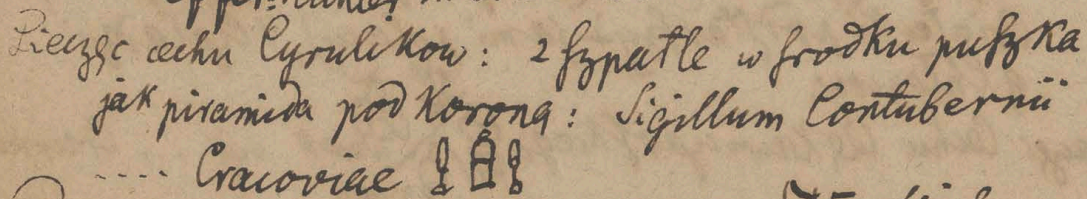 Pieczęć cechu Cyrulikow: 2 szpatle w srodku puszka
jak piramida pod Koroną: Sigillum Contubernii
.... Cracoviae